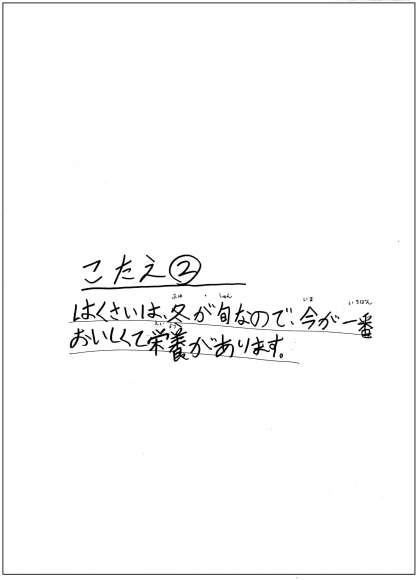 こたえ②
はくさいは、冬が旬なので、今が一番
おいしくて栄養があります。